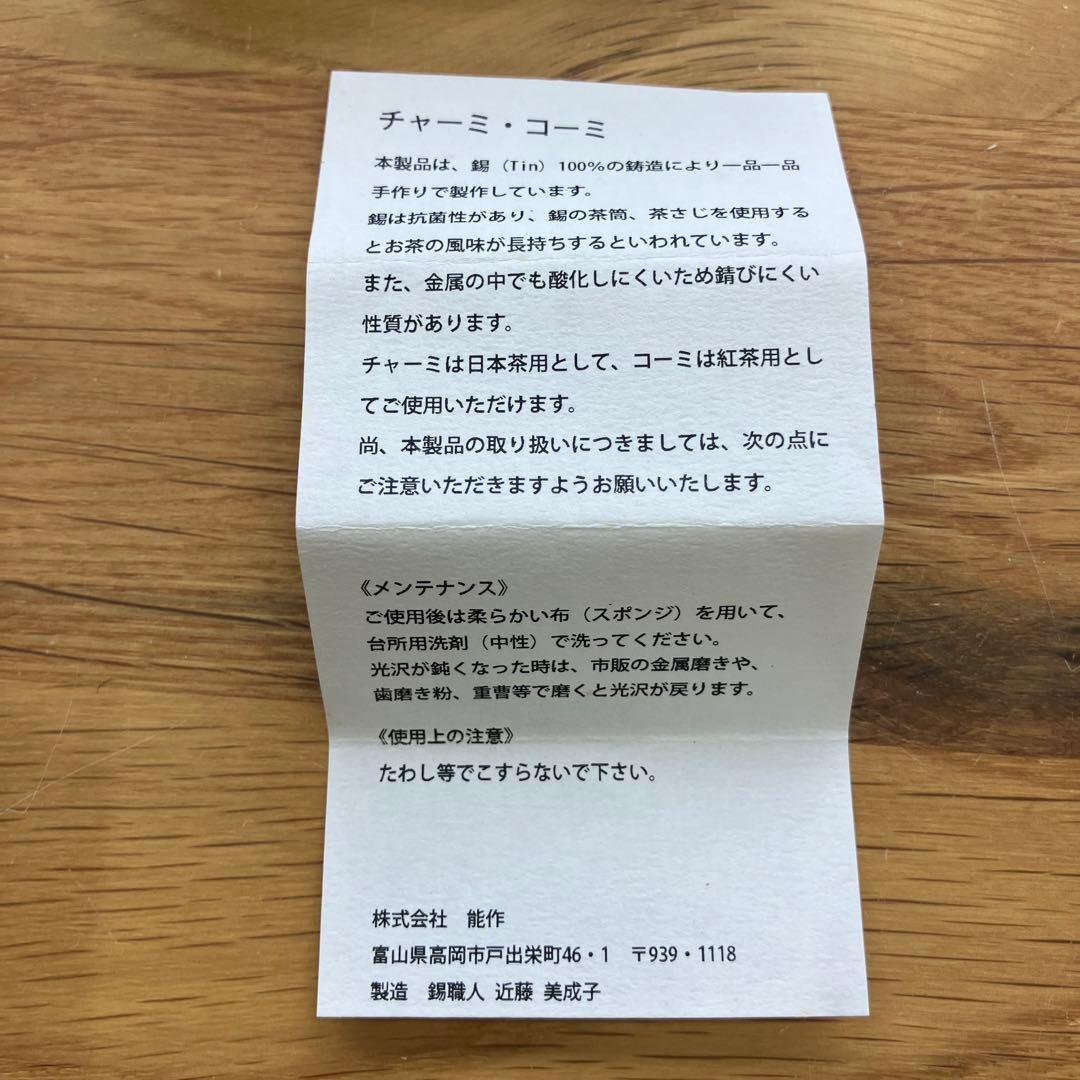 チャーミ・コーミ
本製品は、錫（Tin）100%の鋳造により一品一品
手作りで製作しています。
錫は抗菌性があり、錫の茶筒、茶さじを使用する
とお茶の風味が長持ちするといわれています。
また、金属の中でも酸化しにくいため錆びにくい
性質があります。
チャーミは日本茶用として、コーミは紅茶用とし
てご使用いただけます。
尚、本製品の取り扱いにつきましては、次の点に
ご注意いただきますようお願いいたします。
《メンテナンス》
ご使用後は柔らかい布（スポンジ）を用いて、
台所用洗剤（中性）で洗ってください。
光沢が鈍くなった時は、市販の金属磨きや、
歯磨き粉、重曹等で磨くと光沢が戻ります。
《使用上の注意》
たわし等でこすらないで下さい。
株式会社　能作
富山県高岡市戸出栄町46・1　〒939・1118
製造　錫職人 近藤 美成子